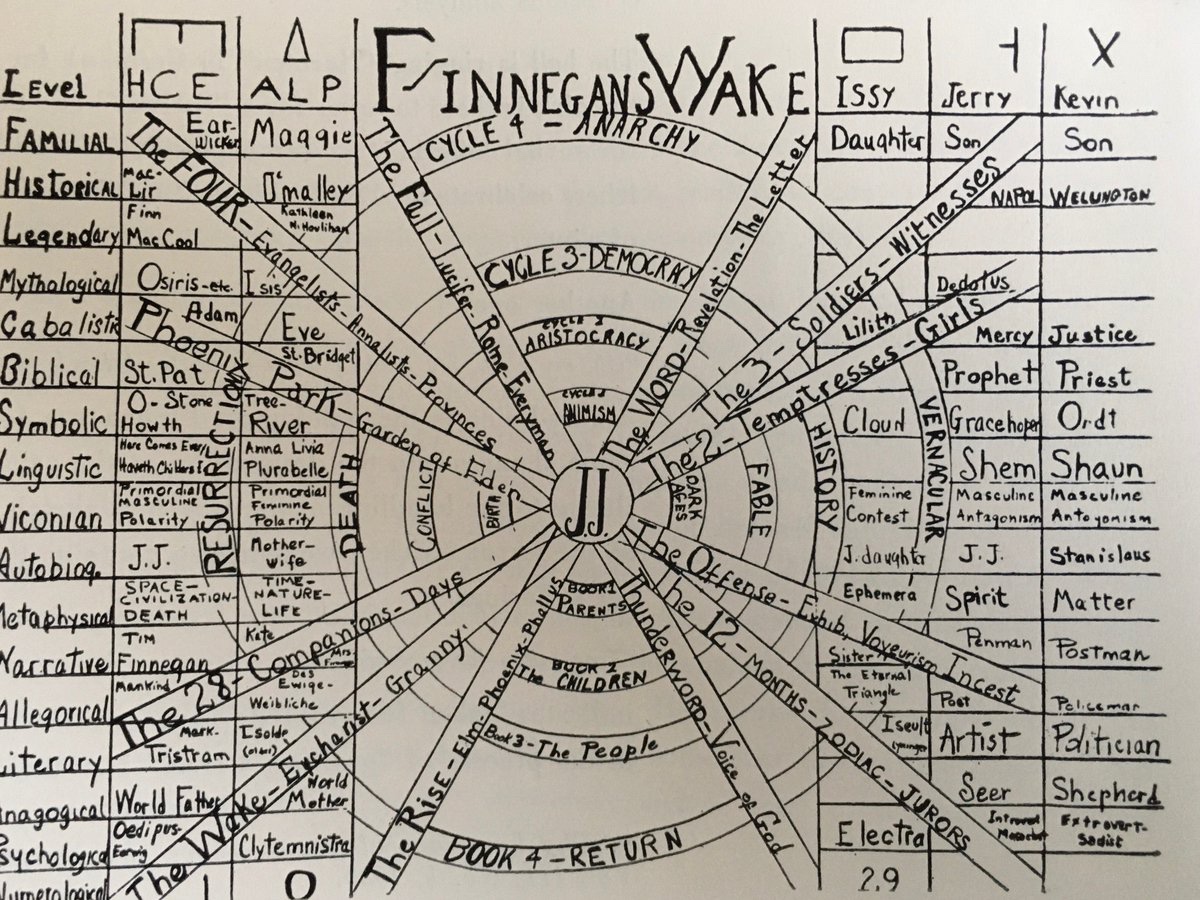 FINNEGANS WAKE
Level HCE ALP Issy Jerry Kevin
Familial Ear-wicker Maggie Daughter Son Son
Historical Mac-Lir O'malley NAPOL WELLINGTON
Legendary Finn MacCool Kathleen N. Houlihan
Mythological Osiris-etc. Isis Dedalus
Adam Eve Lilith Mercy Justice
Biblical St.Pat St.Bridget Prophet Priest
Symbolic O-Stone Howth Tree-River Cloud Gracehoper Ondt
Linguistic Here Comes Every Haveth Childers E Anna Livia Plurabelle Shem Shaun
Viconian Primordial Masculine Polarity Primordial Feminine Polarity Feminine Contest Masculine Antagonism Masculine Antagonism
Autobiog. J.J. Mother-Wife J.daughter J.J. Stanislaus
Metaphysical SPACE-CIVILIZATION-DEATH TIME-NATURE-LIFE Ephemera Spirit Matter
Narrative TIM Finnegan Kate Mrs. Sister Penman Postman
Allegorical Mankind Das Ewige-Weibliche The Eternal Triangle Poet Policeman
Literary Mark. Tristram Isolde Iseult Artist Politician
Anagogical World Father World Mother Seer Shepherd
Psychological Oedipus- Clytemnistra Electra Introvert Masochist Extrovert-Sadist
Numerological 1 0 2,9
CYCLE 4 - ANARCHY
CYCLE 3-DEMOCRACY
CYCLE 2 ARISTOCRACY
CYCLE 1 ANIMISM
The FOUR-Evangelists-Annalists-Provinces
The Fall-Lucifer-Raine-Everyman
The WORD-Revelation-The Letter
The 3-Soldiers-Witnesses
The 2-Temptresses-Girls
Phoenix Park-Garden of Eden
RESURRECTION
DEATH
CONFLICT
BIRTH
J.J.
DARK AGES
FABLE
HISTORY
VERNACULAR
The Offense-Exhib, Voyeurism Incest
The 12-MONTHS-ZODIAC-JURORS
Thunderword-Voice of God
The 28-Companions-Days
The Wake-Eucharist-Granny
The Rise-Elm-Phoenix-Phallus
BOOK 1 PARENTS
BOOK 2 The CHILDREN
Book 3-The People
BOOK 4-RETURN